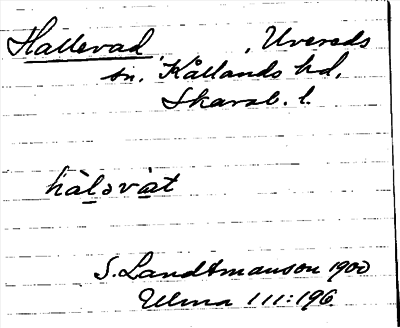 Hallevad , Uvereds
sn. Kållands hd.
Skarab. l.
hàləvàt
S. Landtmanson 1900
Ulma 111:196